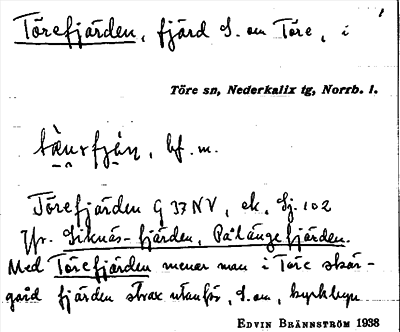 Törefjärden, fjärd S. om Töre, i
Töre sn, Nederkalix tg, Norrb. l.
bf. m.
Törefjärden G 37 NV, ek. Sj. 102
Jfr. Siknäs-fjärden, Pålängefjärden.
Med Törefjärden menar man i Töre skär-
gård fjärden strax utanför, S. om, kyrkbyn
EDVIN BRÄNNSTRÖM 1938